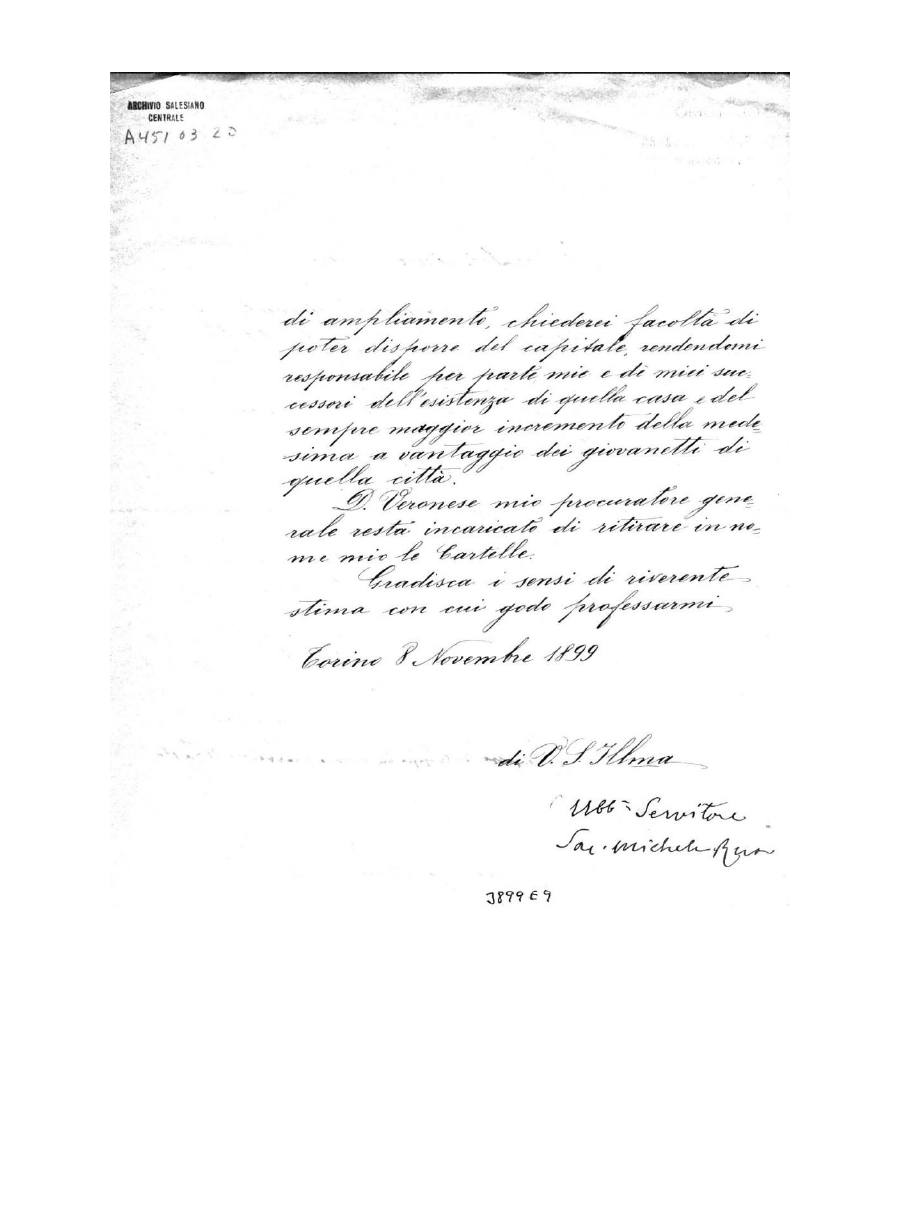 ARCHIVIO SALESIANO
CENTRALE
A451 03 20
di ampliamento, chiederei facoltà di
poter disporre del capitale, rendendomi
responsabile per parte mia e di miei suc=
cessori dell'esistenza di quella casa e del
sempre maggior incremento della mede=
sima a vantaggio dei giovanetti di
quella città.
D. Veronese mio procuratore gene=
rale resta incaricato di ritirare in no=
me mio le Cartelle.
Gradisca i sensi di riverente
stima con cui godo professarmi
Torino 8 Novembre 1899
di V. S. Illma
Servitore
Sac. Michele Rua